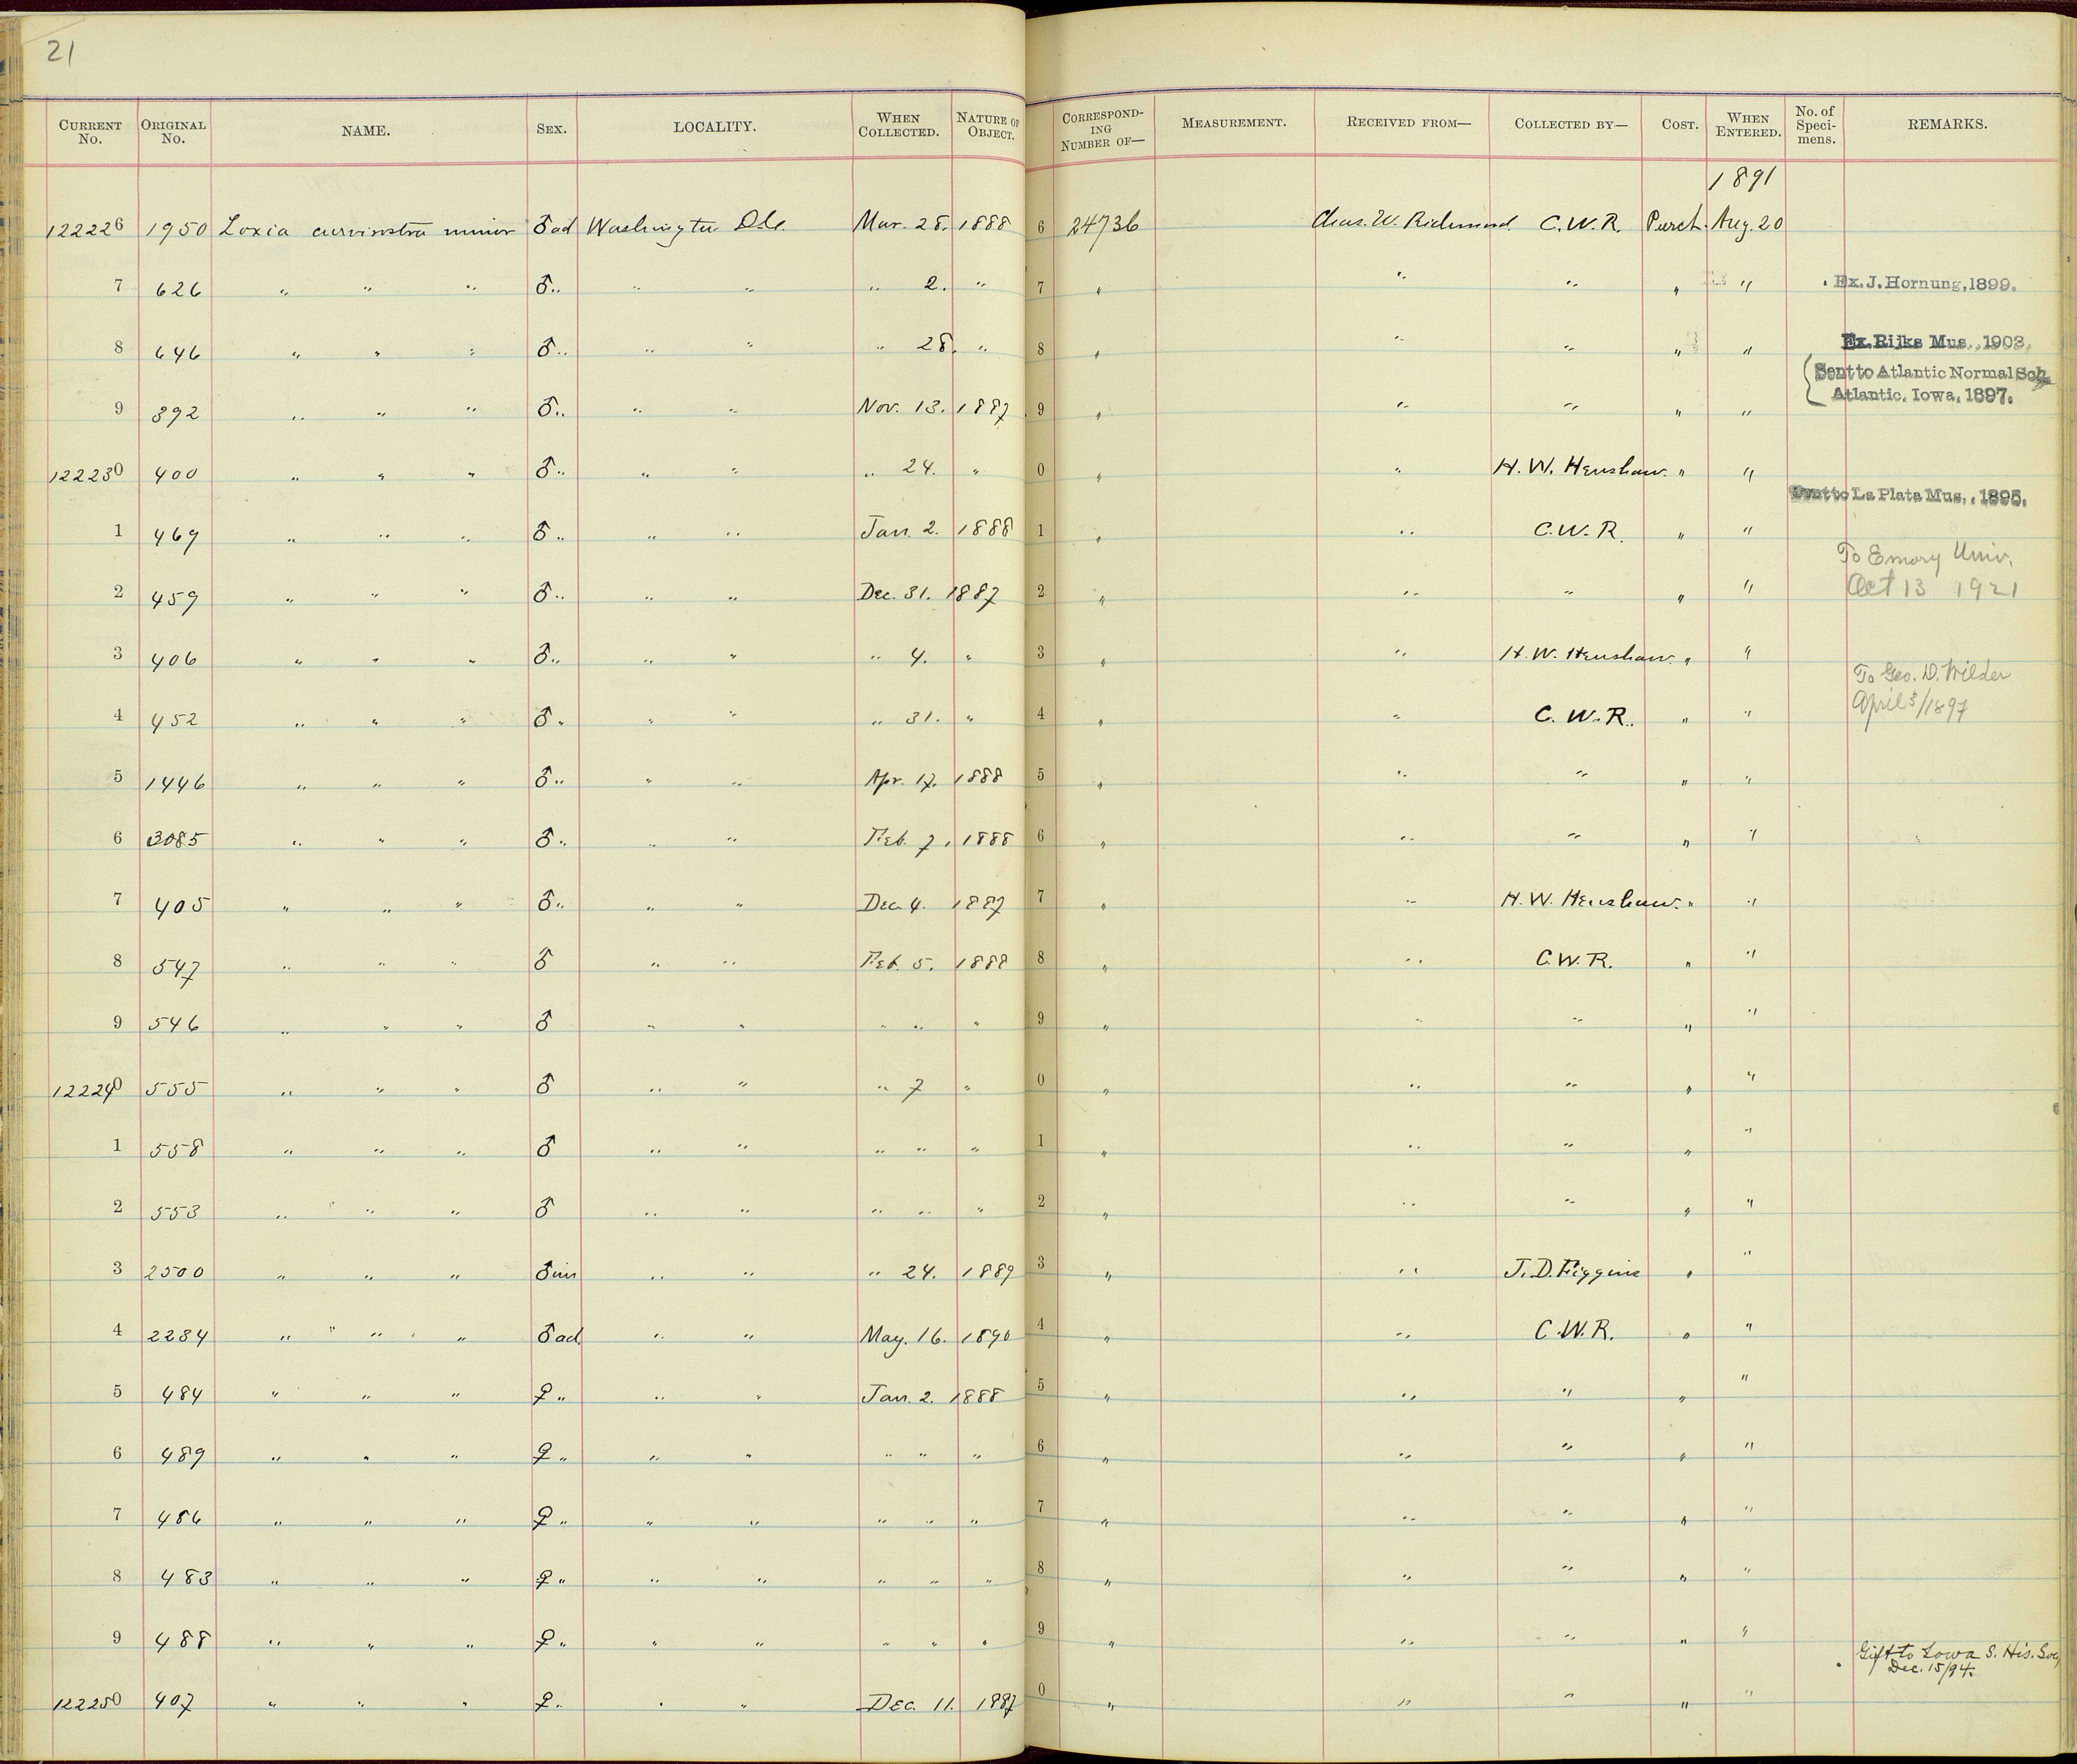 21
CURRENT No. ORIGINAL No. NAME. SEX. LOCALITY. WHEN COLLECTED. NATURE OF OBJECT. CORRESPONDING NUMBER OF— MEASUREMENT. RECEIVED FROM— COLLECTED BY— COST. WHEN ENTERED. No. of Specimens. REMARKS.
1891
122226 1950 Loxia curvirostra minor ♂ad Washington D.C. Mar. 28. 1888 6 24736 Chas. W. Richmond C.W.R. Purch. Aug. 20
7 626 " " " ♂ " " " " 2. " 7 " " " " " Ex. J. Hornung, 1899.
8 646 " " " ♂ " " " " 28. " 8 " " " " " Ex. Rijks Mus., 1903.
9 392 " " " ♂ " " " Nov. 13. 1887 9 " " " " " Sent to Atlantic Normal Sch. Atlantic, Iowa, 1897.
122230 400 " " " ♂ " " " " 24. " 0 " " H. W. Henshaw. " "
1 469 " " " ♂ " " " Jan. 2. 1888 1 " " C.W.R. " " Sent to La Plata Mus., 1895.
2 459 " " " ♂ " " " Dec. 31. 1887 2 " " " " " To Emory Univ. Oct 13 1921
3 406 " " " ♂ " " " " 4. " 3 " " H. W. Henshaw. " "
4 452 " " " ♂ " " " " 31. " 4 " " C. W. R. " " To Geo. D. Wilder April 3/1897
5 1446 " " " ♂ " " " Apr. 17. 1888 5 " " " " "
6 3085 " " " ♂ " " " Feb. 7, 1888 6 " " " " "
7 405 " " " ♂ " " " Dec. 4. 1887 7 " " H. W. Henshaw. " "
8 547 " " " ♂ " " Feb. 5. 1888 8 " " C.W.R. " "
9 546 " " " ♂ " " " " " 9 " " " " "
122240 555 " " " ♂ " " " 7 " 0 " " " " "
1 558 " " " ♂ " " " " " 1 " " " " "
2 553 " " " ♂ " " " " " 2 " " " " "
3 2500 " " " ♂im " " " 24. 1889 3 " " J. D. Figgins " "
4 2284 " " " ♂ad. " " May. 16. 1890 4 " " C.W.R. " "
5 484 " " " ♀ " " " Jan. 2. 1888 5 " " " " "
6 489 " " " ♀ " " " " " " 6 " " " " "
7 486 " " " ♀ " " " " " " 7 " " " " "
8 483 " " " ♀ " " " " " " 8 " " " " "
9 488 " " " ♀ " " " " " " 9 " " " " "
122250 407 " " " ♀ " " " Dec. 11. 1887 0 " " " " " Gift to Iowa S. His. Soc, Dec. 15/94.